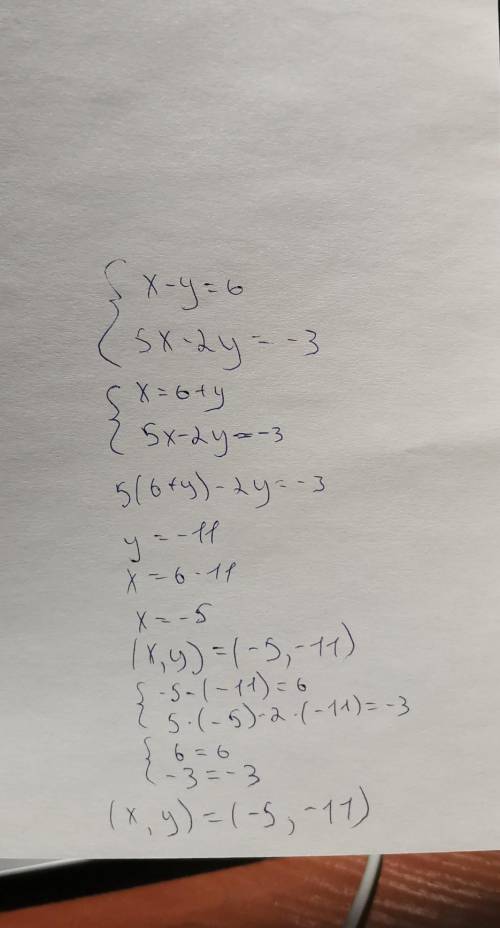 { x-y=6
5x-2y=-3
{ x=6+y
5x-2y=-3
5(6+y)-2y=-3
y=-11
x=6-11
x=-5
(x,y)=(-5,-11)
{ -5-(-11)=6
5·(-5)-2·(-11)=-3
{ 6=6
-3=-3
(x,y)=(-5,-11)